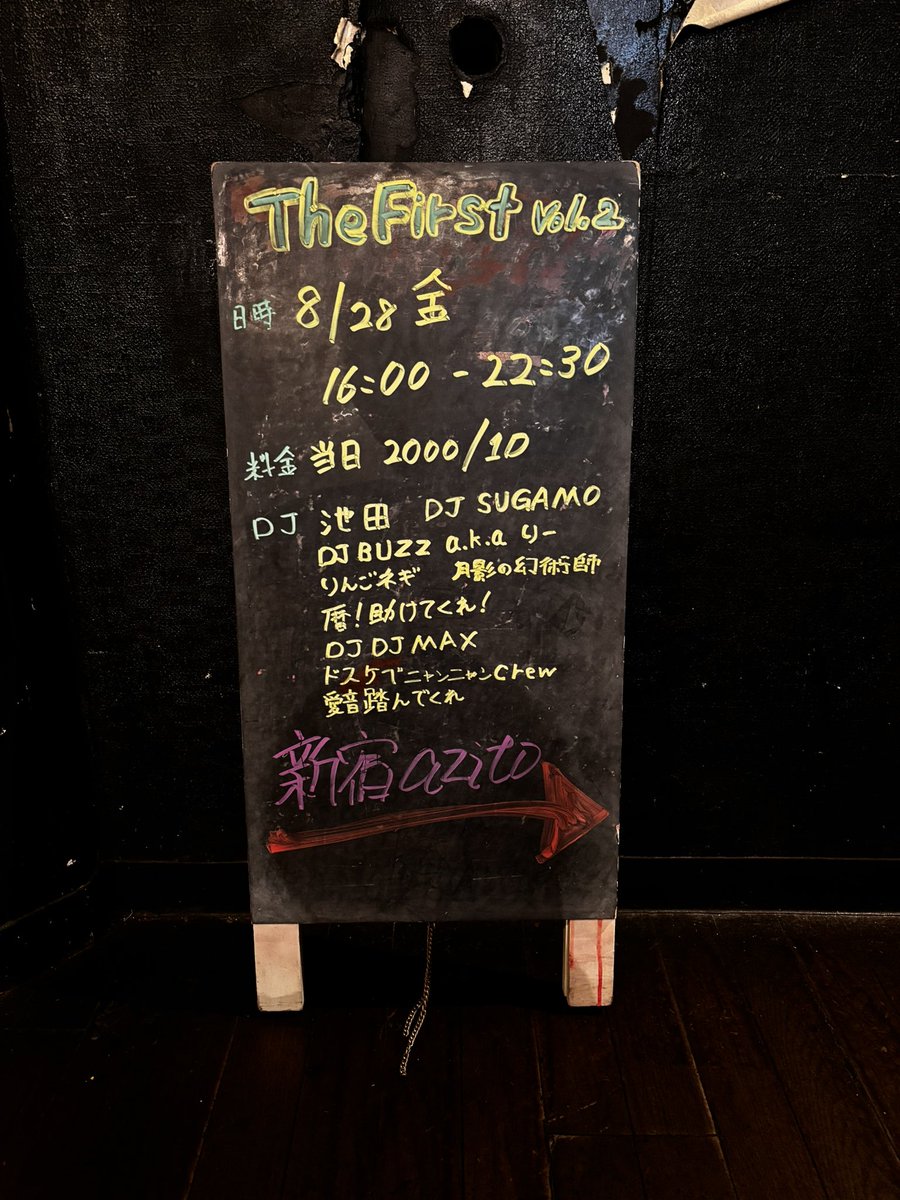 The First Vol.2
日時 8/28 金
16:00 - 22:30
料金 当日 2000/1D
DJ 池田 DJ SUGAMO
DJ BUZZ a.k.a りー
りんごネギ 月影の幻術師
暦!助けてくれ!
DJ DJ MAX
ドスケブニャンニャンCrew
愛音踏んでくれ
新宿azito